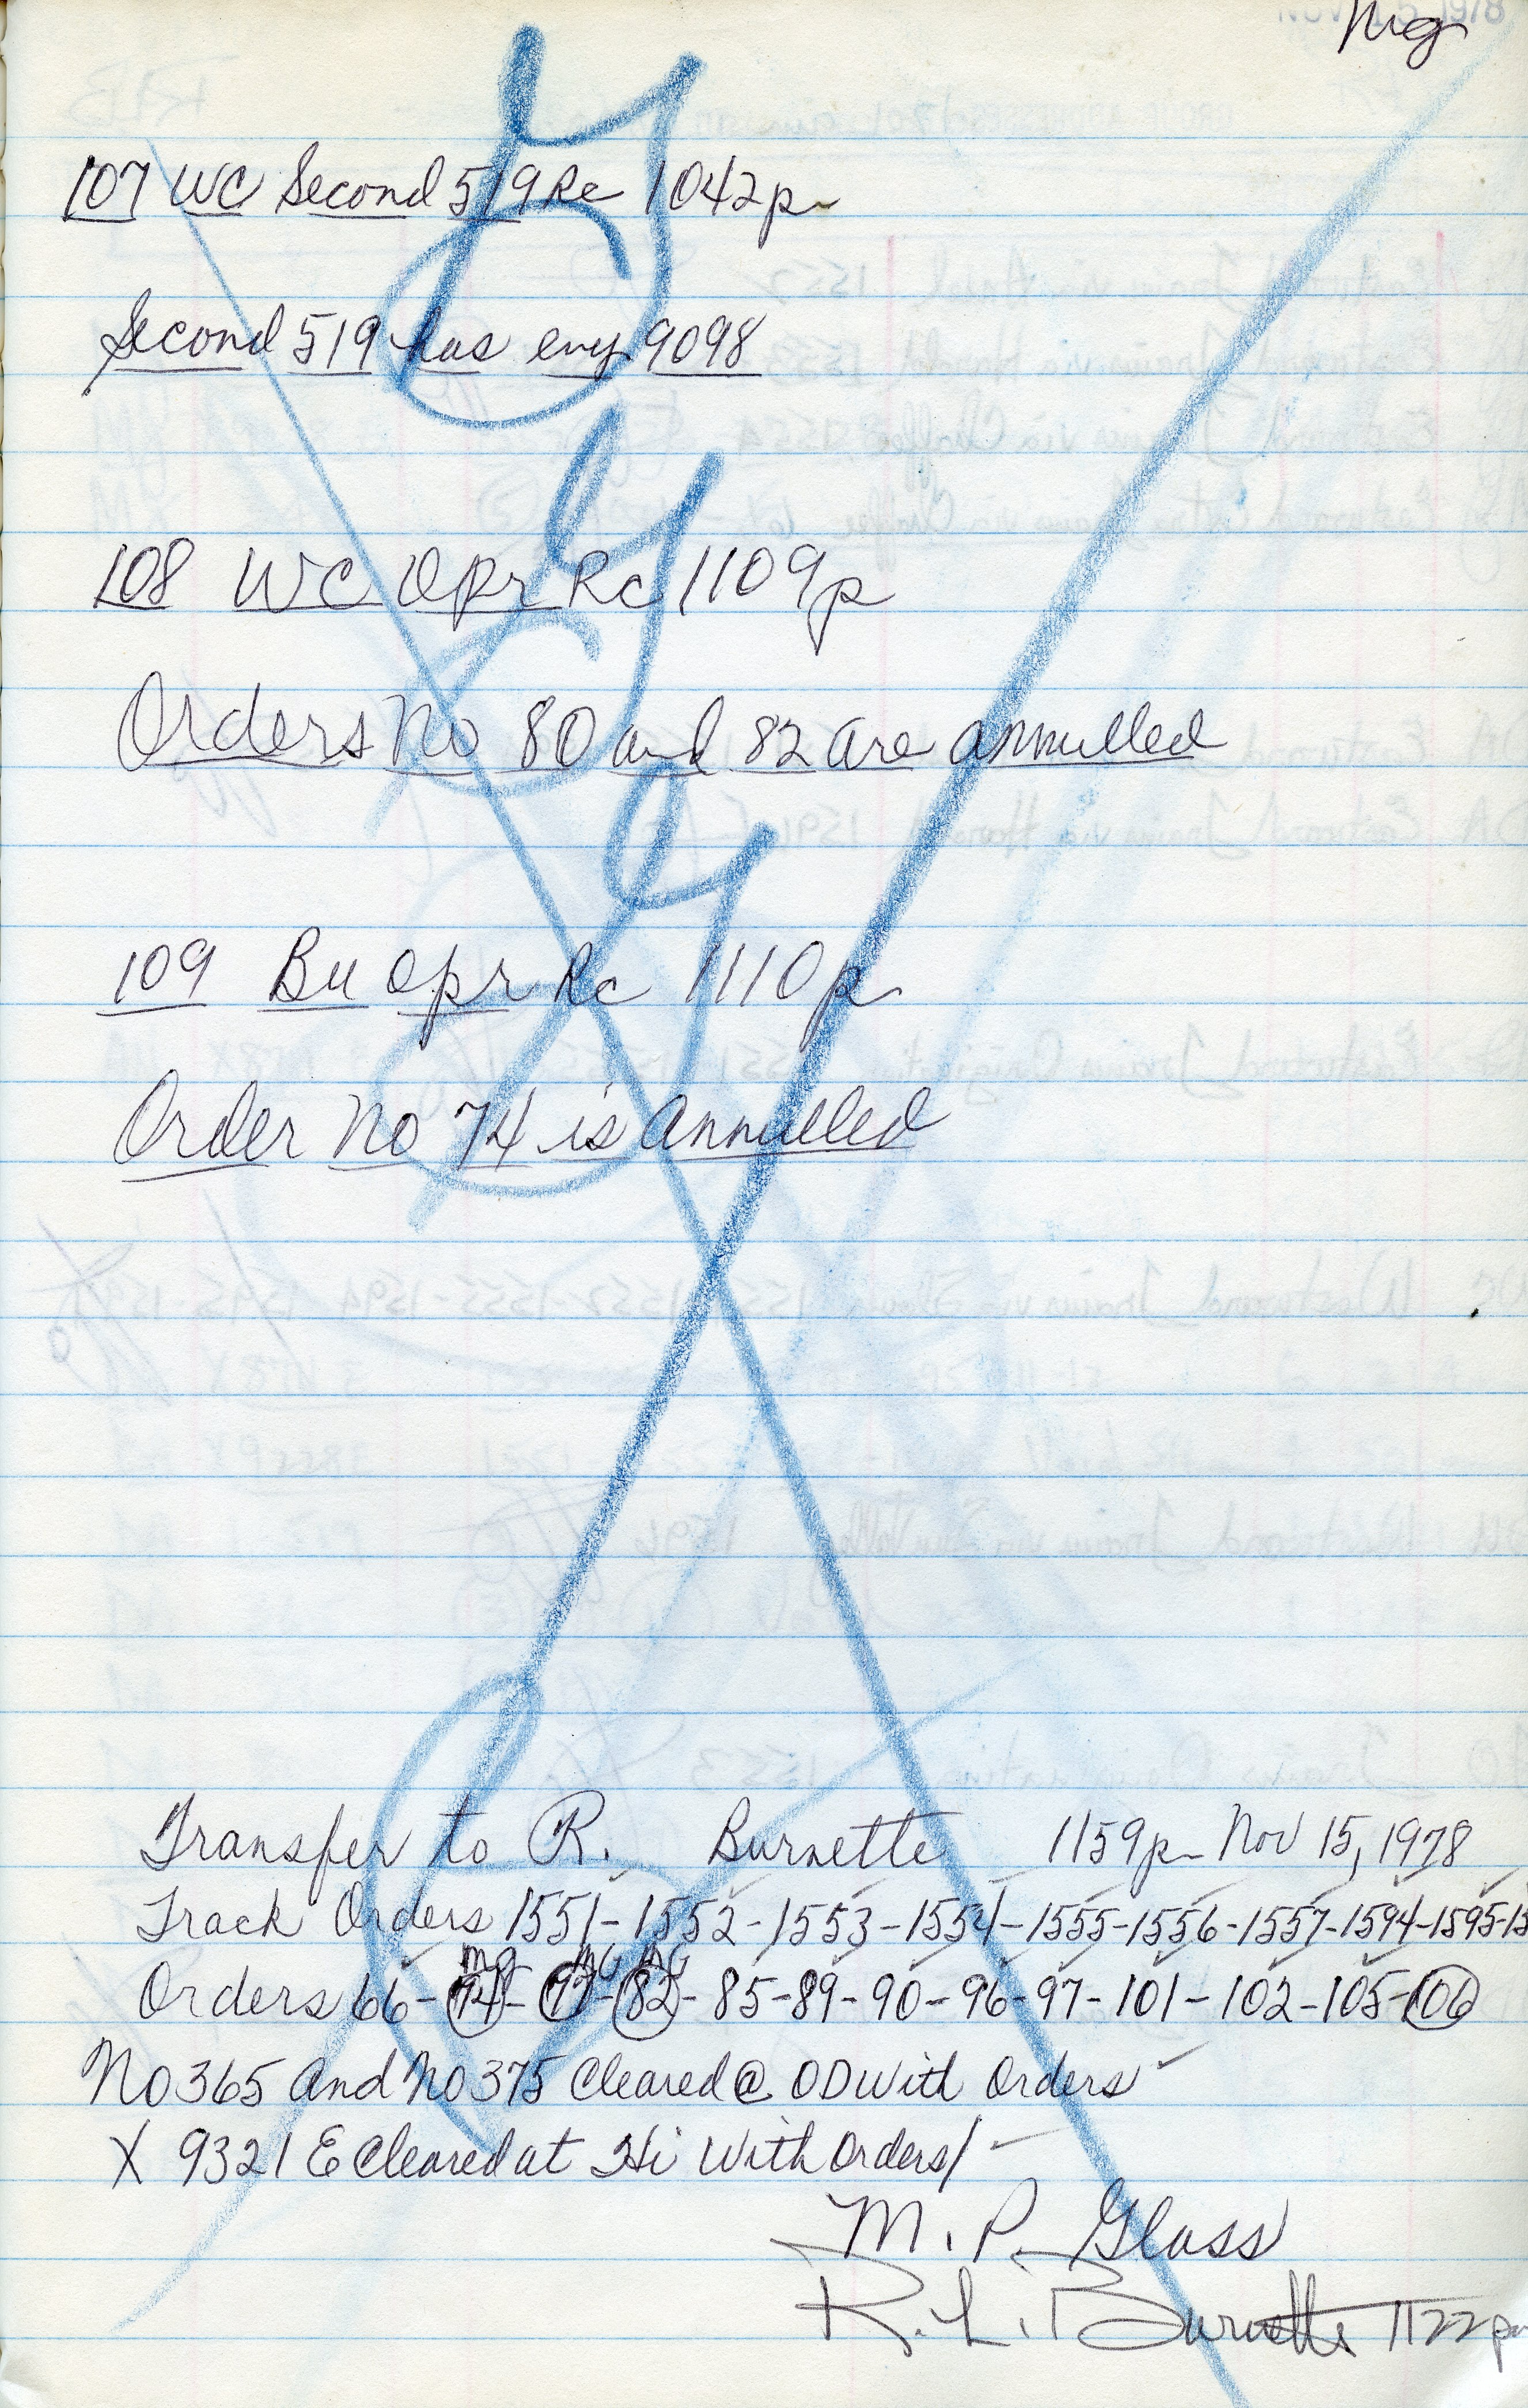 NOV 15 1978
mg
107 WC Second 519 Rc 1042p
Second 519 has eng 9098
108 WC Opr Rc 1109p
Orders No 80 and 82 are annulled
109 Bu Opr Rc 1110p
Order No 74 is annulled
Transfer to R. Burnette 1159p Nov 15, 1978
Track Orders 1551-1552-1553-1554-1555-1556-1557-1594-1595-15
mg
Orders 66-74-77-82-85-89-90-96-97-101-102-105-106
No 365 and No 375 Cleared @ OD With Orders
X 9321 E Cleared at Hi With Orders
M. P. Glass
R. L. Burnette 1122pm